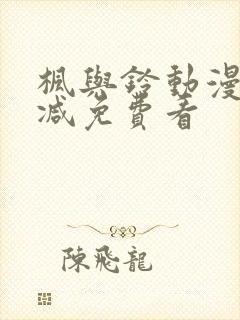 楓與鈴動漫
減免費看
陳飛龍